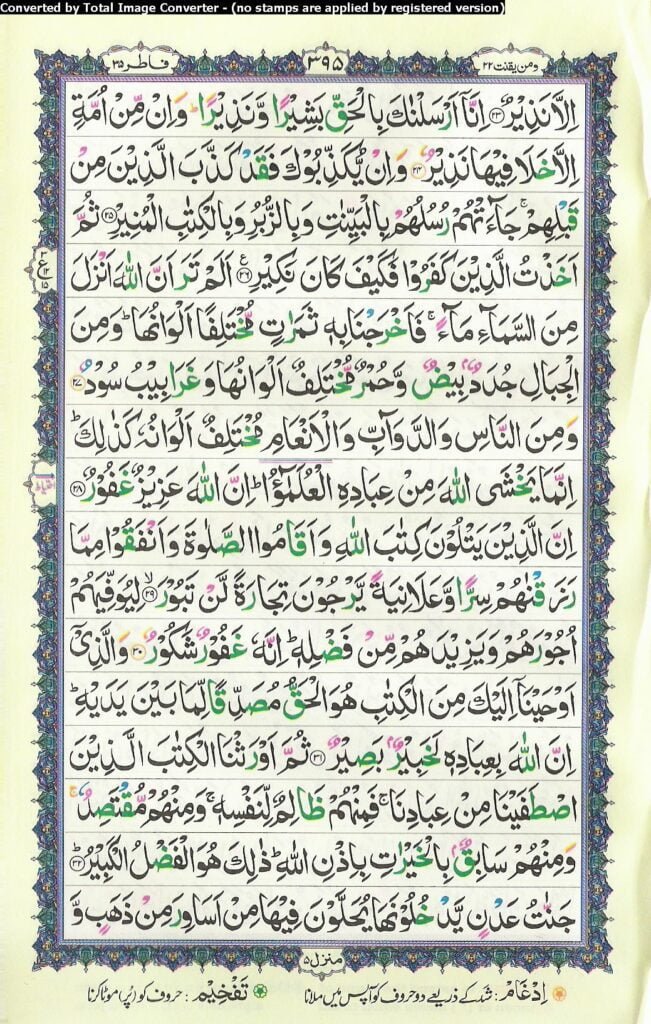 Converted by Total Image Converter - (no stamps are applied by registered version)
ومن يقنت ٢٢
٣٩٥
فاطر ٣٥
اِلَّا نَذِيْرٌ ﴿۲۳﴾ اِنَّاۤ اَرْسَلْنٰكَ بِالْحَقِّ بَشِيْرًا وَّنَذِيْرًا ؕ وَاِنْ مِّنْ اُمَّةٍ
اِلَّا خَلَا فِيْهَا نَذِيْرٌ ﴿۲۴﴾ وَاِنْ يُّكَذِّبُوْكَ فَقَدْ كَذَّبَ الَّذِيْنَ مِنْ
قَبْلِهِمْ ۚ جَآءَتْهُمْ رُسُلُهُمْ بِالْبَيِّنٰتِ وَبِالزُّبُرِ وَبِالْكِتٰبِ الْمُنِيْرِ ﴿۲۵﴾ ثُمَّ
اَخَذْتُ الَّذِيْنَ كَفَرُوْا فَكَيْفَ كَانَ نَكِيْرِ ﴿۲۶﴾ ع اَلَمْ تَرَ اَنَّ اللّٰهَ اَنْزَلَ
٣
ع
١٢
١٥
مِنَ السَّمَآءِ مَآءً ۚ فَاَخْرَجْنَا بِهٖ ثَمَرٰتٍ مُّخْتَلِفًا اَلْوَانُهَا ؕ وَمِنَ
الْجِبَالِ جُدَدٌۢ بِيْضٌ وَّحُمْرٌ مُّخْتَلِفٌ اَلْوَانُهَا وَغَرَابِيْبُ سُوْدٌ ﴿۲۷﴾
وَمِنَ النَّاسِ وَالدَّوَآبِّ وَالْاَنْعَامِ مُخْتَلِفٌ اَلْوَانُهٗ كَذٰلِكَ ؕ
اِنَّمَا يَخْشَى اللّٰهَ مِنْ عِبَادِهِ الْعُلَمٰٓؤُا ؕ اِنَّ اللّٰهَ عَزِيْزٌ غَفُوْرٌ ﴿۲۸﴾
احتیاط
اِنَّ الَّذِيْنَ يَتْلُوْنَ كِتٰبَ اللّٰهِ وَاَقَامُوا الصَّلٰوةَ وَاَنْفَقُوْا مِمَّا
رَزَقْنٰهُمْ سِرًّا وَّعَلَانِيَةً يَّرْجُوْنَ تِجَارَةً لَّنْ تَبُوْرَ ﴿۲۹﴾ لِيُوَفِّيَهُمْ
اُجُوْرَهُمْ وَيَزِيْدَهُمْ مِّنْ فَضْلِهٖ ؕ اِنَّهٗ غَفُوْرٌ شَكُوْرٌ ﴿۳۰﴾ وَالَّذِيْۤ
اَوْحَيْنَاۤ اِلَيْكَ مِنَ الْكِتٰبِ هُوَ الْحَقُّ مُصَدِّقًا لِّمَا بَيْنَ يَدَيْهِ ؕ
اِنَّ اللّٰهَ بِعِبَادِهٖ لَخَبِيْرٌۢ بَصِيْرٌ ﴿۳۱﴾ ثُمَّ اَوْرَثْنَا الْكِتٰبَ الَّذِيْنَ
اصْطَفَيْنَا مِنْ عِبَادِنَا ۚ فَمِنْهُمْ ظَالِمٌ لِّنَفْسِهٖ ۚ وَمِنْهُمْ مُّقْتَصِدٌ ۚ
وَمِنْهُمْ سَابِقٌۢ بِالْخَيْرٰتِ بِاِذْنِ اللّٰهِ ؕ ذٰلِكَ هُوَ الْفَضْلُ الْكَبِيْرُ ﴿۳۲﴾
جَنّٰتُ عَدْنٍ يَّدْخُلُوْنَهَا يُحَلَّوْنَ فِيْهَا مِنْ اَسَاوِرَ مِنْ ذَهَبٍ وَّ
منزل ٥
اِدْغَام : شد کے ذریعے دو حروف کو آپس میں ملانا
تَفْخِيْم : حروف کو (پُر) موٹا کرنا